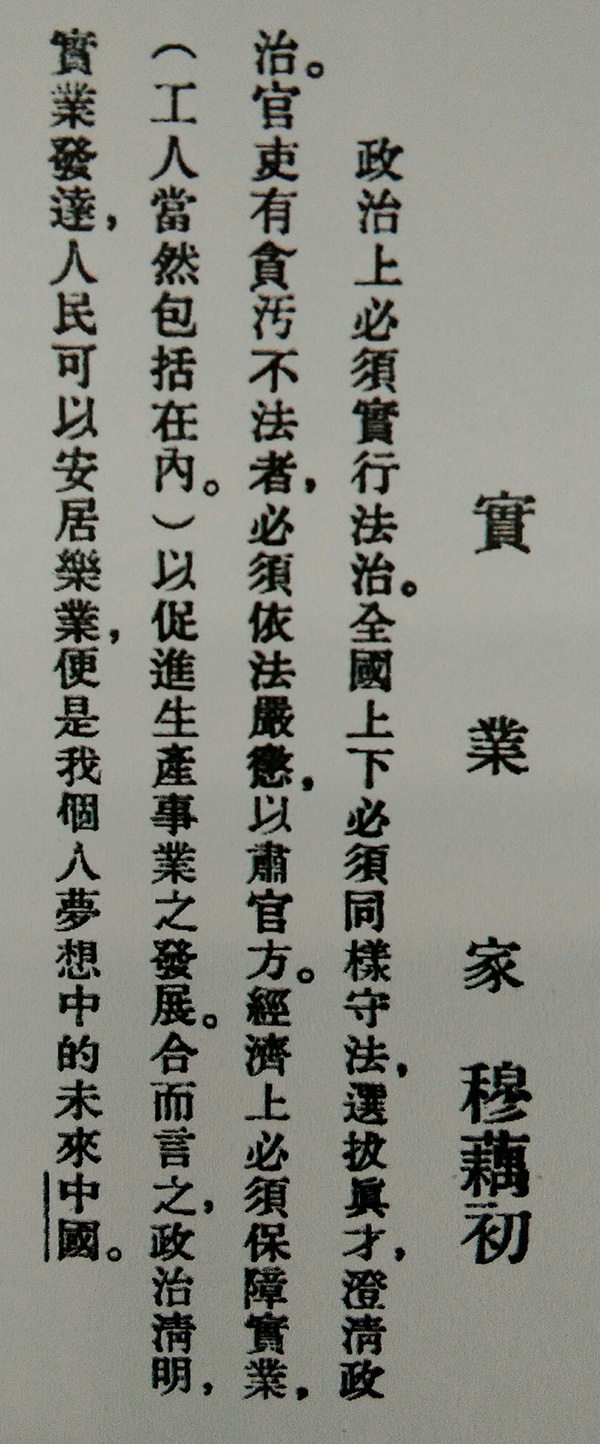 實業家穆藕初
政治上必須實行法治。全國上下必須同樣守法，選拔眞才，澄淸政
治。官吏有貪汚不法者，必須依法嚴懲，以肅官方。經濟上必須保障實業，
（工人當然包括在內。）以促進生產事業之發展。合而言之，政治淸明，
實業發達，人民可以安居樂業，便是我個人夢想中的未來中國。